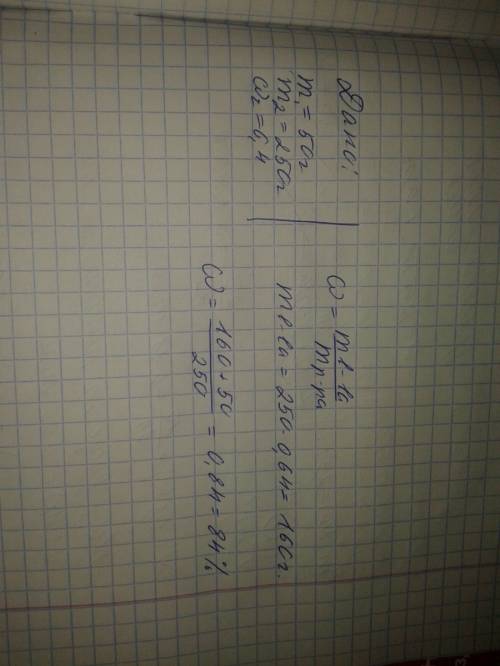 Дано:
m₁ = 50г
m₂ = 250г
ω₂ = 6,4
ω = mв-ва / mр-ра
mв-ва = 250 · 0,64 = 160г.
ω = 160+50 / 250 = 0,84 = 84%